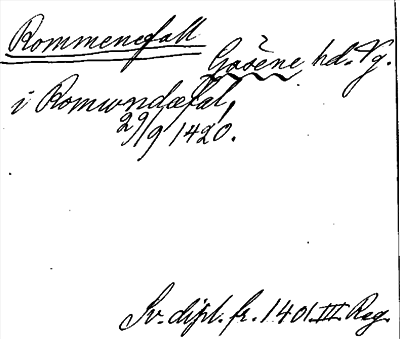 Rommenefall
Gäsene hd. Vg.
i Romundæfal,
29/9 1420.
Sv. dipl. fr. 1401. III. Reg.